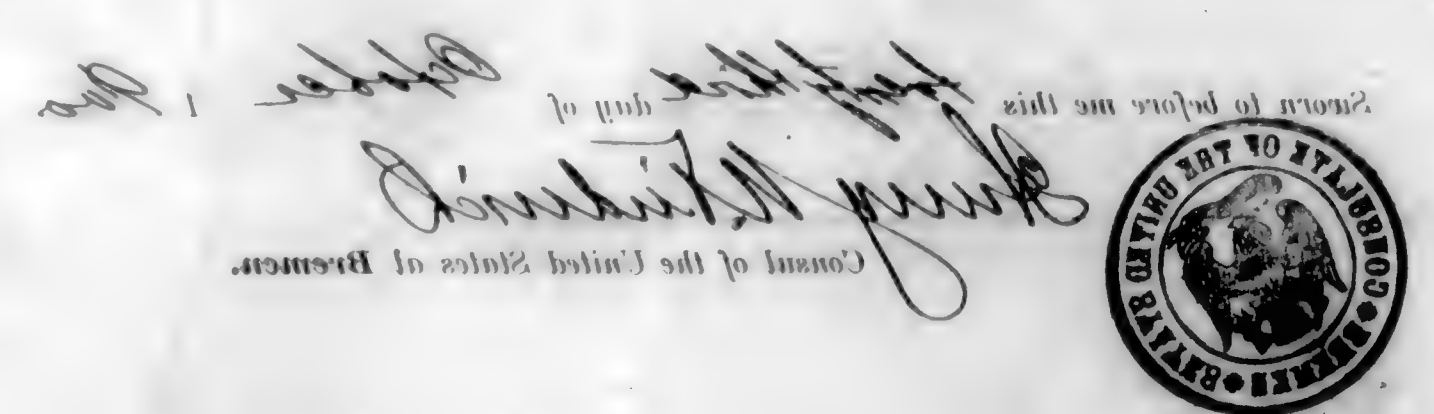 Sworn to before me this twenty third day of October 1900
Henry W. Diederich
Consul of the United States at Bremen.
CONSULATE OF THE UNITED STATES * BREMEN *